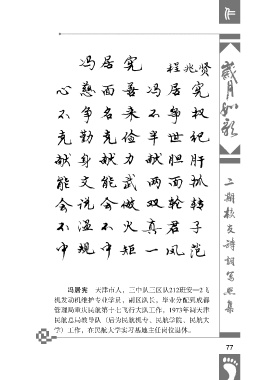 冯居宪 程兆贤
心慈面善冯居宪
不争名来不争权
克勤克俭半世纪
献身献力献胆肝
能文能武两面抓
会说会做双轮转
不温不火真君子
中规中矩一风范
冯居宪 天津市人，二中队二区队212班安—2飞
机发动机维护专业学员，副区队长。毕业分配到成都
管理局重庆民航第十七飞行大队工作，1973年调天津
民航总局教导队（后为民航机专、民航学院、民航大
学）工作，在民航大学实习基地主任岗位退休。
岁月如歌
二期校友诗词写照集
77